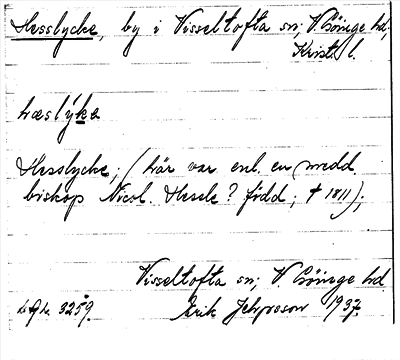 Hesslycke, by i Visseltofta sn; V. Göinge hd,
Krist. l.
hæslýke
Hesslycke; (här var enl. en medd
biskop Nicol. Hessle? född; † 1811);
Visseltofta sn; V. Göinge hd
3259. Erik Jeppsson 1937.